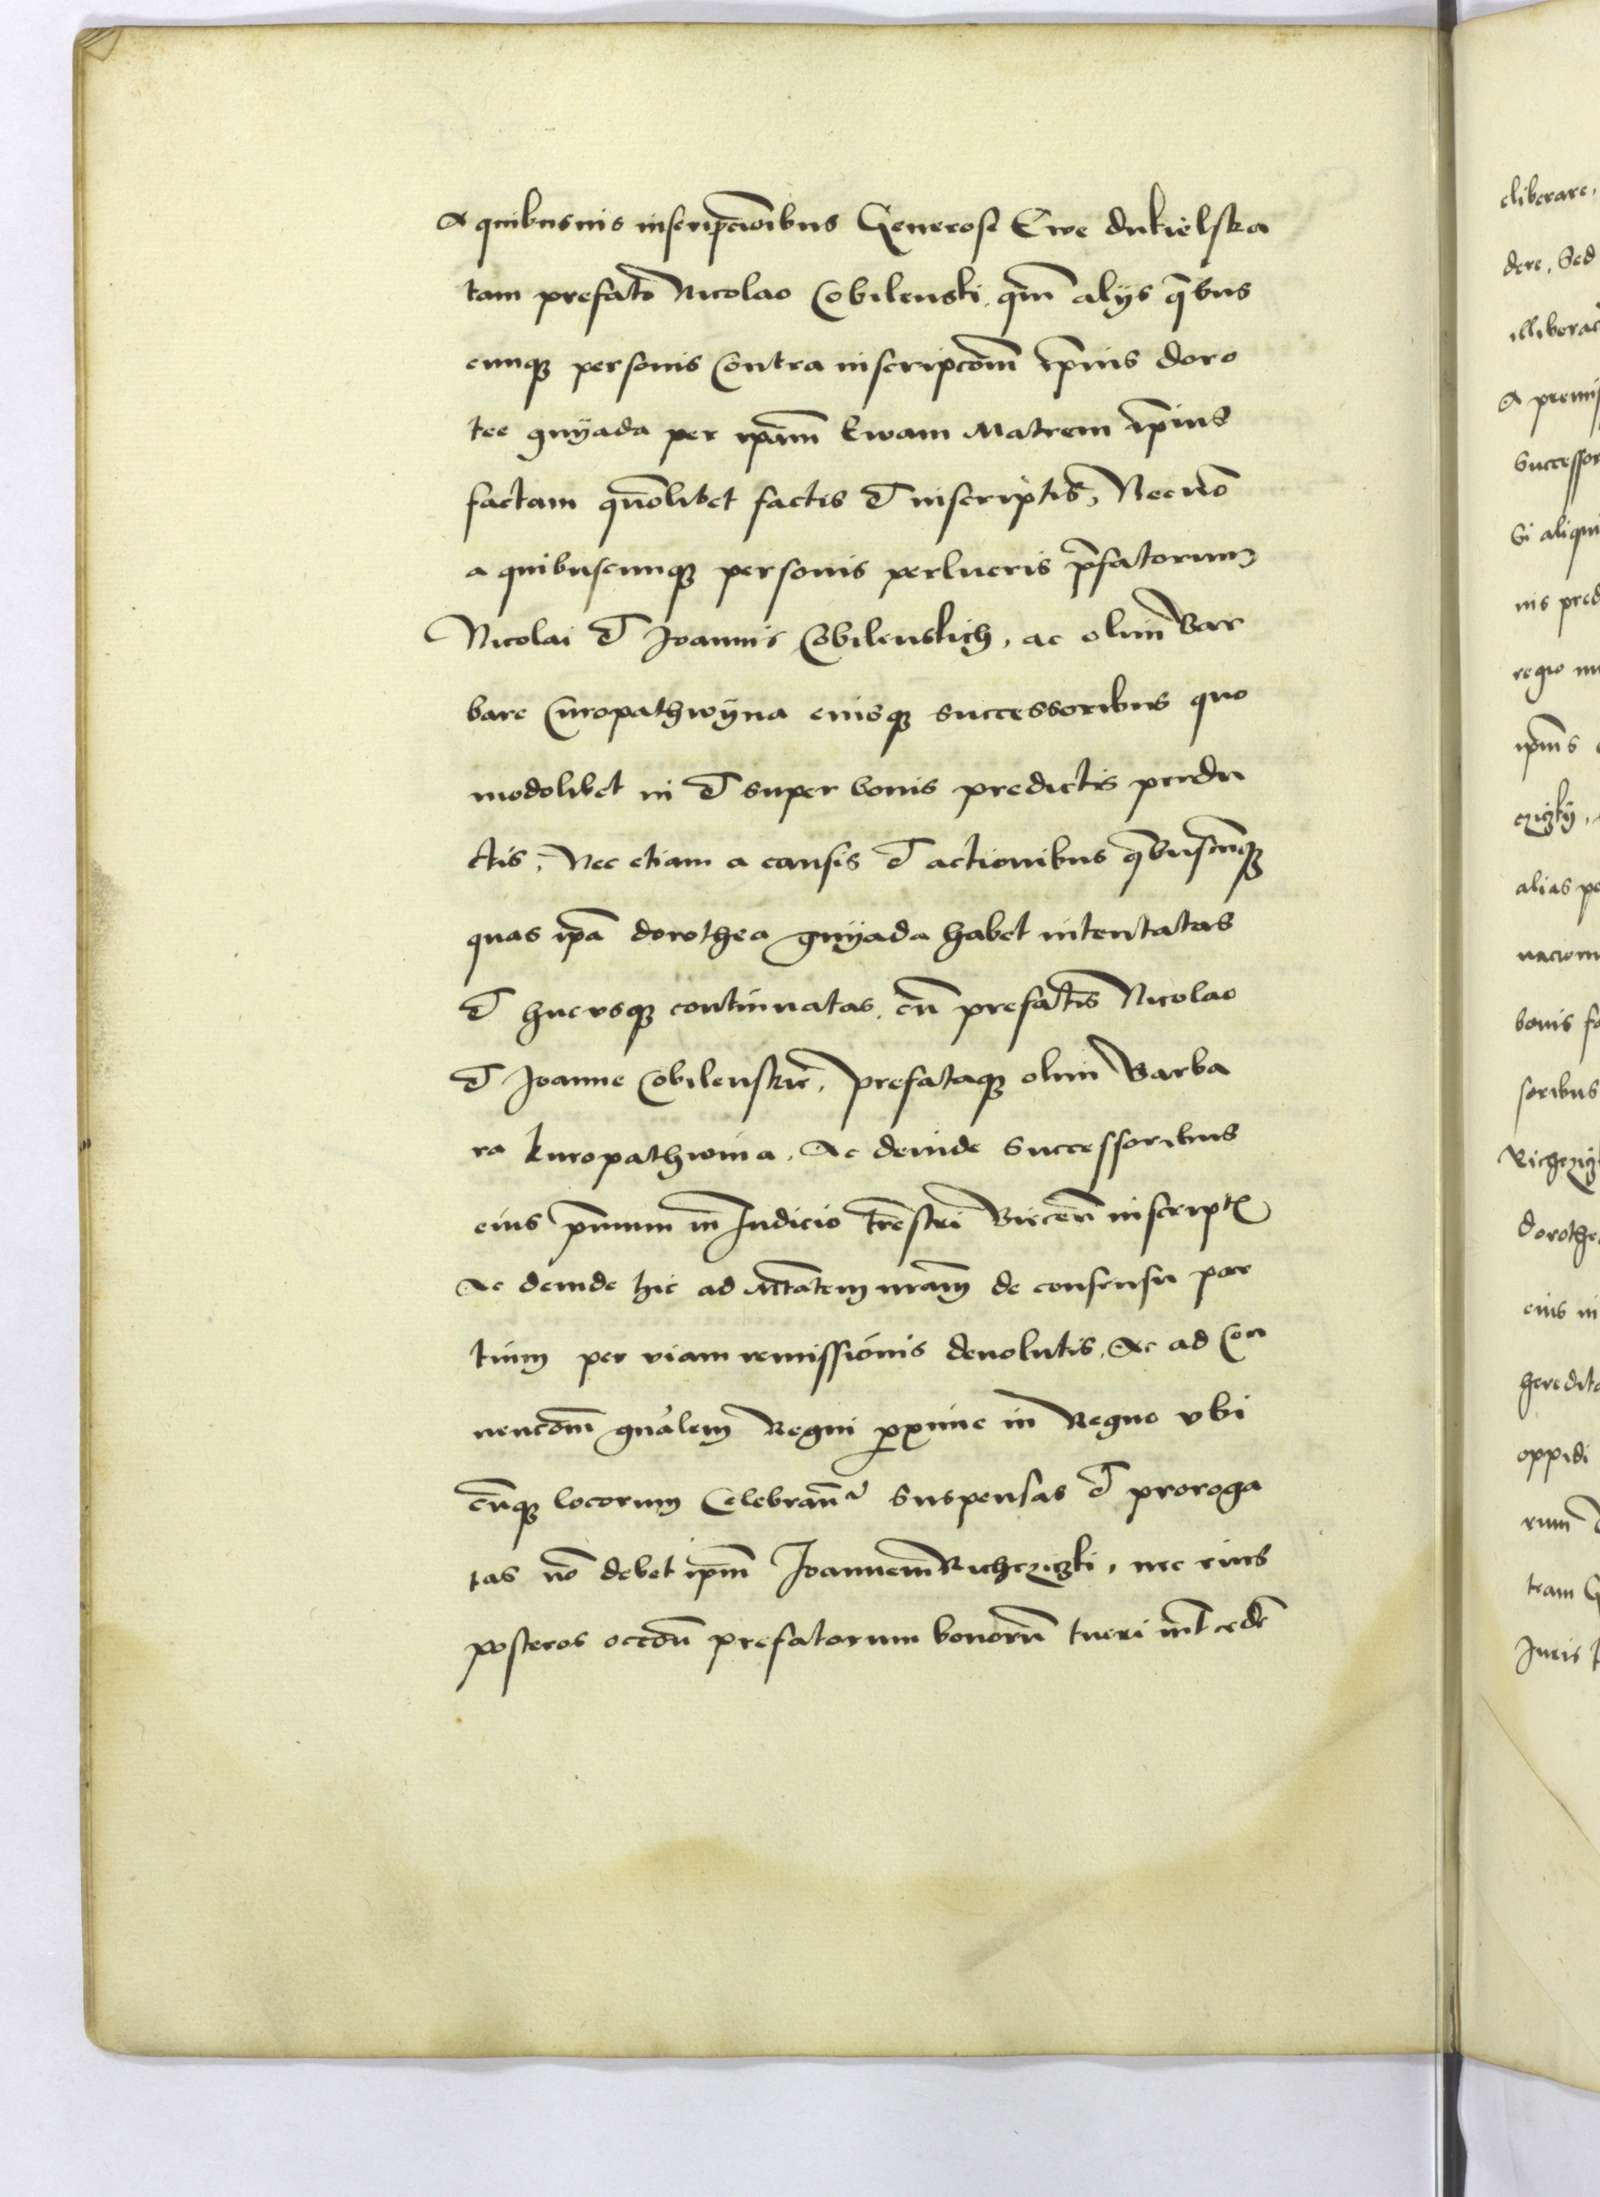 A quibusuis inscripcionibus Generose Ewe dukielska
tam prefato Nicolao Cobilenski. qm̄ alijs qībus
cunqꝫ personis Contra inscripcōm ip̄ius doro
tee gnÿada per ip̄am Ewam Matrem ip̄ius
factam qūolibet factis et inscriptis, Necnō
a quibuscunqꝫ personis perlucris p̄fatorum
Nicolai et Joannis Cobilenskich, ac olim Bar
bare Curopathwÿna eiusqꝫ successoribus quo
modolibet in et super bonis predictis perdu
ctis, Nec etiam a causis et actionibus qībuscūqꝫ
quas ip̄a dorothea gnÿada habet intentatas
et hucvsqꝫ continuatas, cū prefatis Nicolao
et Joanne Cobilenskie, prefataqꝫ olim Barba
ra kuropathwina, Ac deinde Successoribus
eius p̄mum in Judicio tr̄estri Biecen̄ inscript
Ac deinde hic ad Mtātem nrām de consensu par
tium per viam remissionis deuolutis, Ac ad Con
uencōm gn̄alem Regni ꝓxime in Regno vbi
cūqꝫ locorum Celebran̄ Suspensas et proroga
tas nō debet ip̄m Joannem Richcziczki, nec eius
posteros occōn prefatorum bonorū tueri
eliberare,
dere, Sed
A premis
Successor
Si aliqui
nis pred
regio
ip̄ius
alias
bonis
soribus
dorothe
eius in
heredita
oppidi
rum
tram
Juris